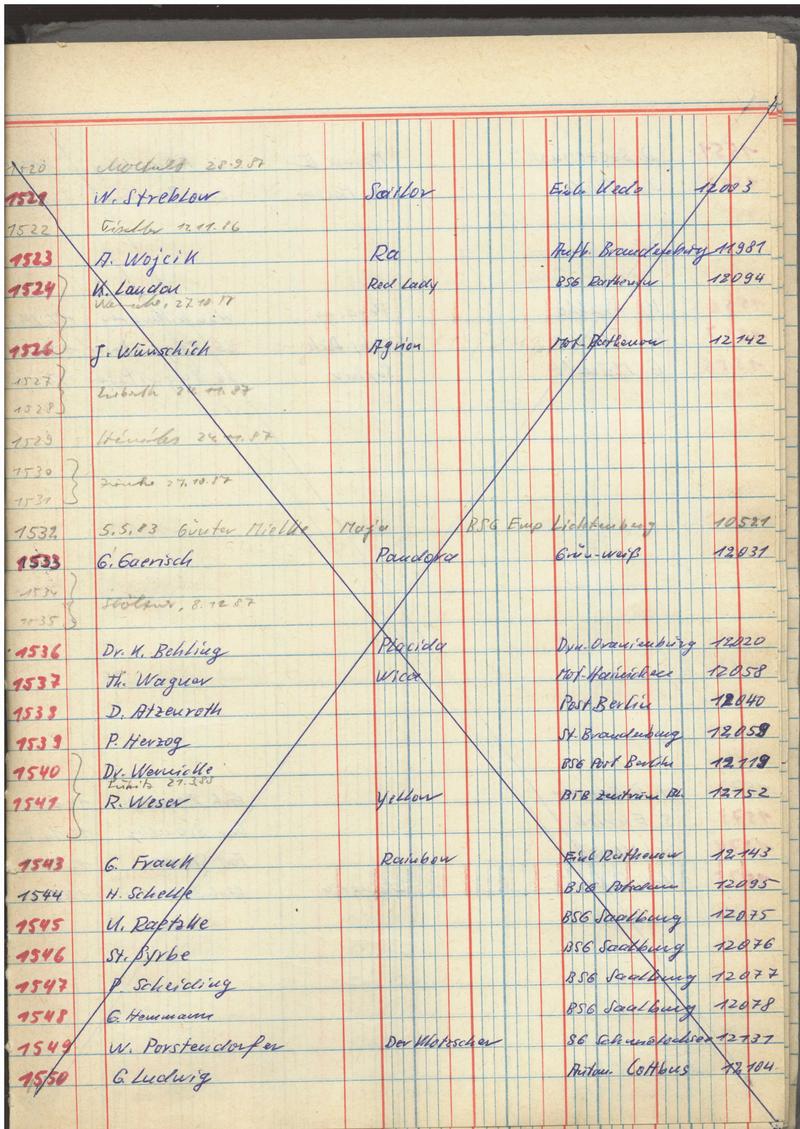 1520 28.9.87
1521 W. Streblow Sailor 12003
1522 12.11.86
1523 A. Wojcik Ra Aufb. Brandenburg 11981
1524 K. Landon Red Lady BSG Rathenow 12094
27.10.87
1526 J. Wünschich Agrion Mot. Rathenow 12142
1527
24.11.87
1528
1529 24.11.87
1530
27.10.87
1531
1532 5.5.83 Günter Mielke Maja BSG Emp Lichtenberg 10521
1533 G. Gaerisch Pandora Grün-weiß 12031
1534
8.12.87
1535
1536 Dr. K. Behling Placida Dyn. Oranienburg 12020
1537 Th. Wagner Wica Mot. Hainichen 12058
1538 D. Atzenroth Post Berlin 12040
1539 P. Herzog St. Brandenburg 12059
1540 Dr. Wernicke BSG Post Berlin 12119
1541 R. Weser Yellow Zentrum 12152
1543 G. Frank Rainbow Einh. Rathenow 12143
1544 H. Schelle BSG Potsdam 12095
1545 U. Raetzke BSG Saalburg 12075
1546 St. Syrbe BSG Saalburg 12076
1547 P. Scheiding BSG Saalburg 12077
1548 G. Hemmann BSG Saalburg 12078
1549 W. Porstendorfer Der Klotzscher SG 12131
1550 G. Ludwig Autom. Cottbus 12104